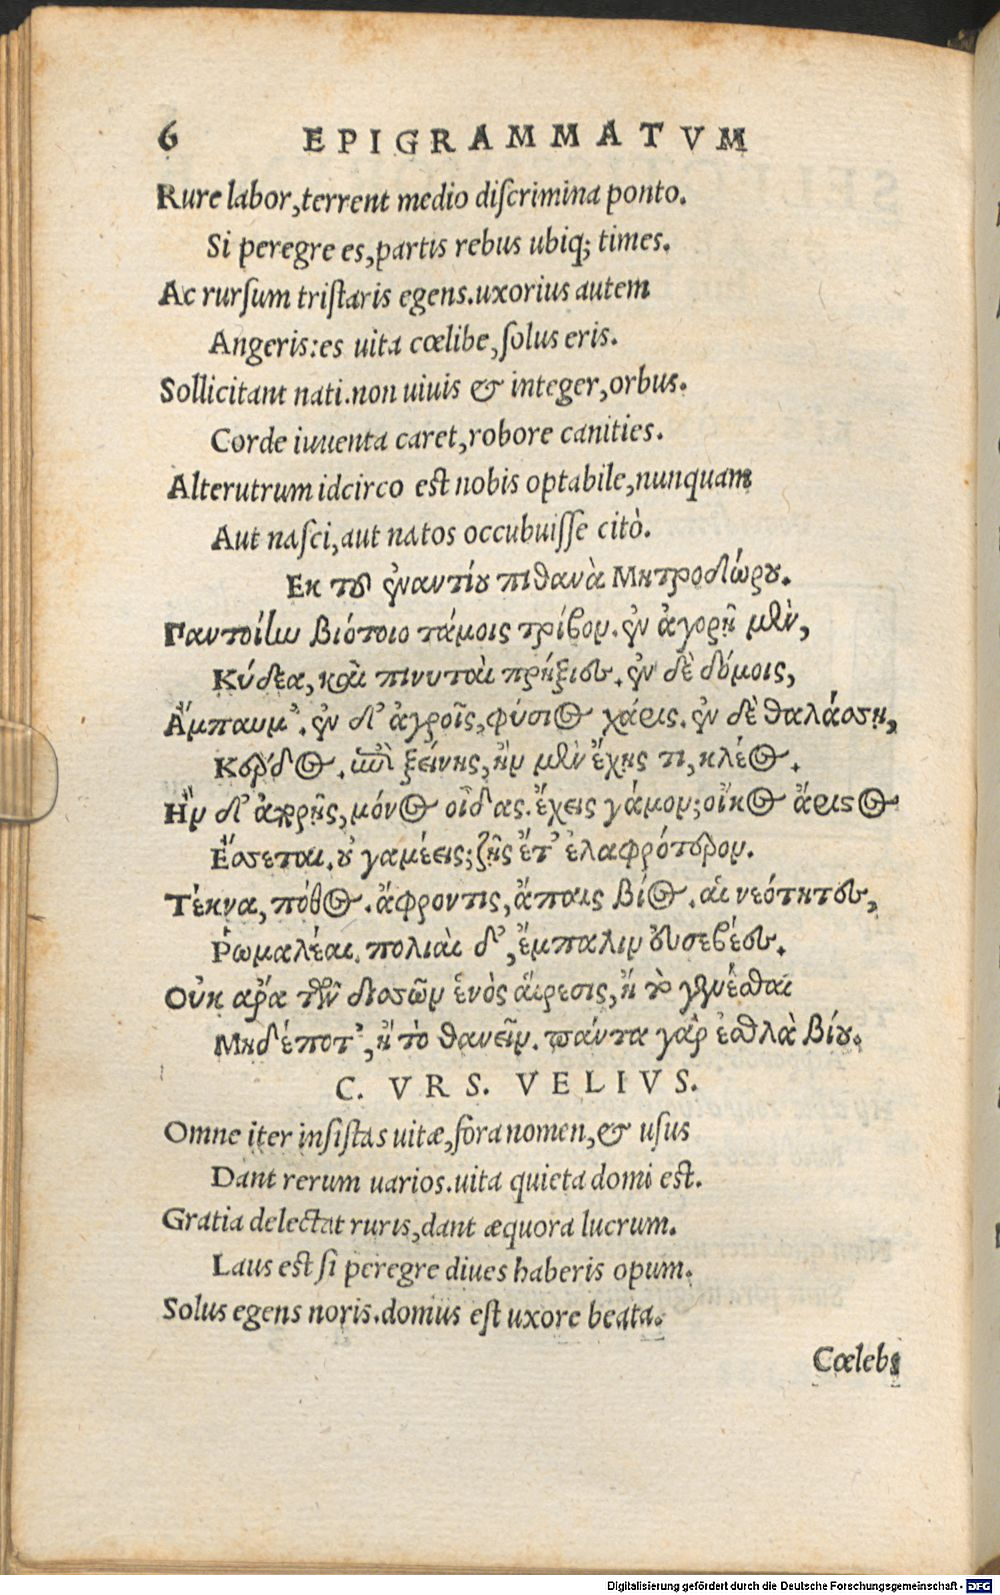 6 EPIGRAMMATVM
Rure labor, terrent medio diſcrimina ponto.
Si peregre es, partis rebus ubiq; times.
Ac rurſum triſtaris egens. uxorius autem
Angeris: es uita cœlibe, ſolus eris.
Sollicitant nati. non uiuis & integer, orbus.
Corde iuuenta caret, robore canities.
Alterutrum idcirco est nobis optabile, nunquam
Aut naſci, aut natos occubuiſſe citò.
Εκ τοῦ ἐναντίου πιθανὰ Μητροδώρου.
Γαντοίην βιότοιο τάμοις τρίβον. ἐν ἀγορῇ μὲν,
Κύδεα, καὶ πινυταὶ πρήξιες. ἐν δὲ δόμοις,
Ἄμπαυμ'. ἐν δ' ἀγροῖς, φύσιος χάρις. ἐν δὲ θαλάσσῃ,
Κέρδος. ἐπὶ ξείνης, ἢν μὲν ἔχῃς τι, κλέος.
Ἢν δ' ἀπορῇς, μόνος οἶδας. ἔχεις γάμον; οἶκος ἄριστος
Ἔσσεται. οὐ γαμέεις; ζῇς ἔτ' ἐλαφρότερον.
Τέκνα, πόθος. ἄφροντις, ἄπαις βίος. αἱ νεότητες,
Ῥωμαλέαι. πολιαὶ δ', ἔμπαλιν εὐσεβέες.
Οὐκ αρα τῶν δισσῶν ἑνὸς αἵρεσις, ἢ τὸ γενέσθαι
Μηδέποτ', ἢ τὸ θανεῖν. πάντα γὰρ ἐσθλὰ βίου.
C. VRS. VELIVS.
Omne iter inſiſtas uitæ, fora nomen, & uſus
Dant rerum uarios. uita quieta domi est.
Gratia delectat ruris, dant æquora lucrum.
Laus est ſi peregre diues haberis opum.
Solus egens noris. domus eſt uxore beata.
Cœlebs
Digitalisierung gefördert durch die Deutsche Forschungsgemeinschaft - DFG